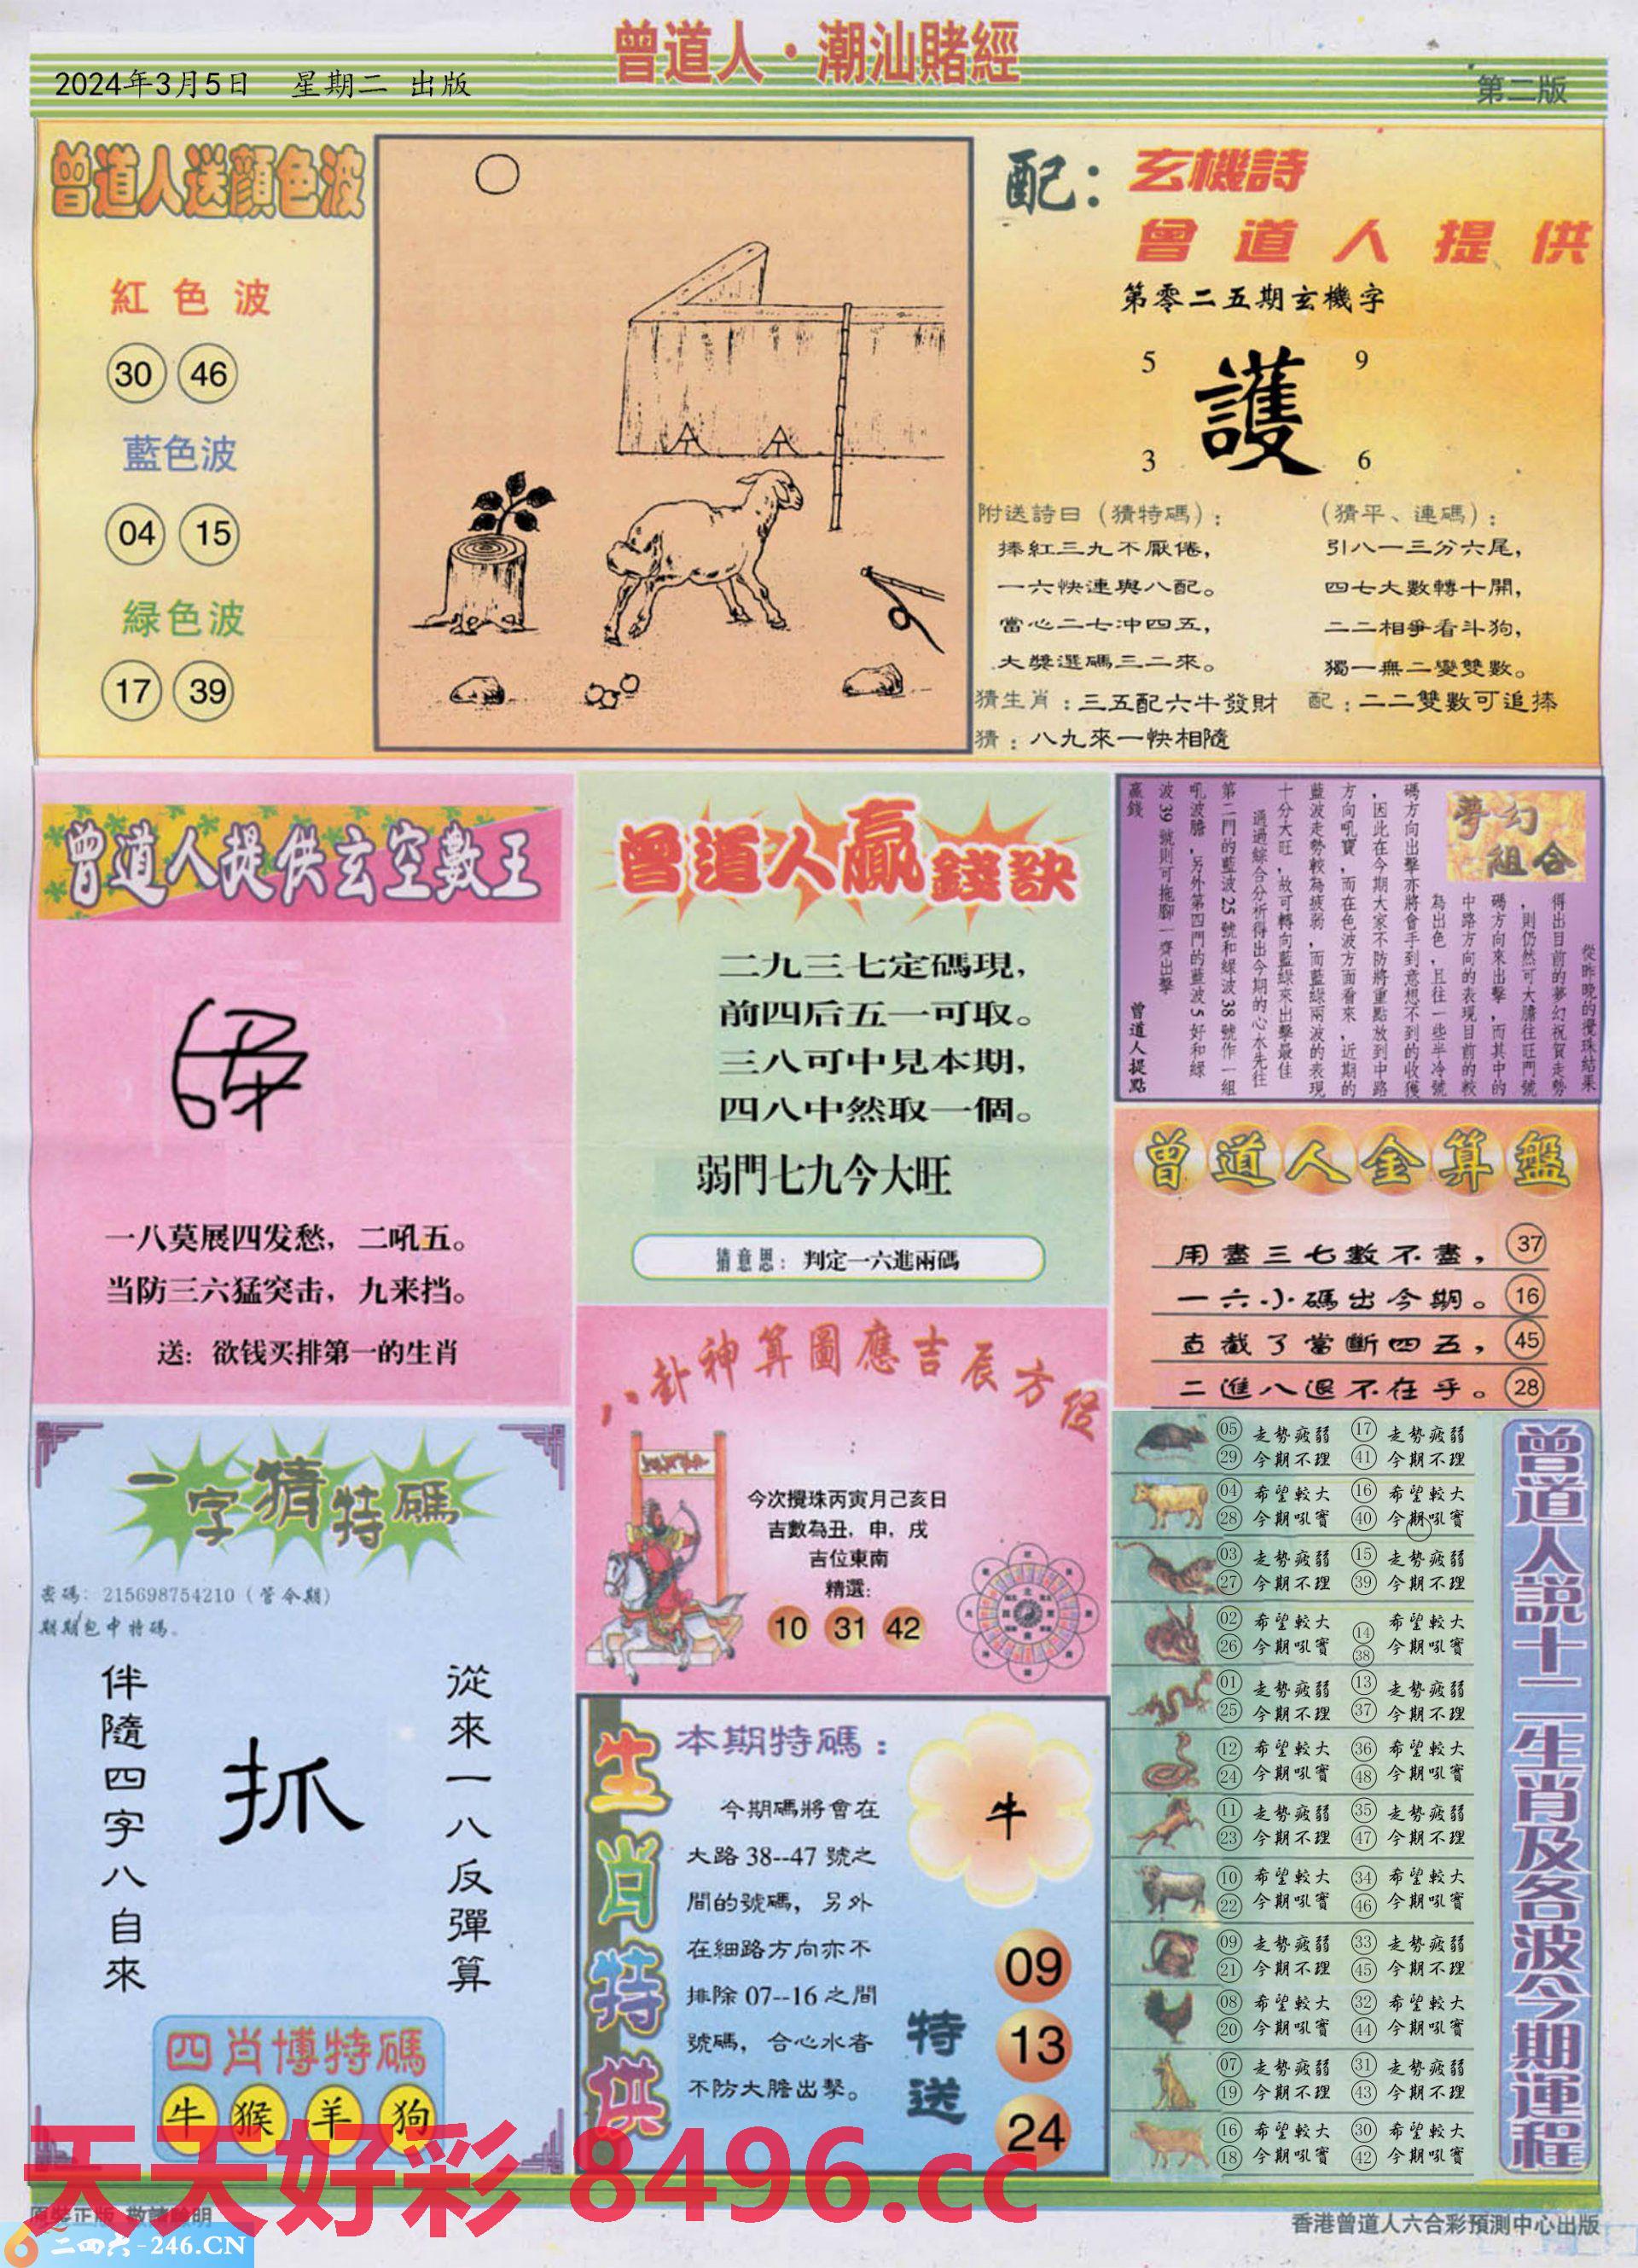 曾道人·潮汕賭經
2024年3月5日 星期二 出版
第二版
曾道人送顏色波
紅色波
30 46
藍色波
04 15
緑色波
17 39
配：玄機詩
曾道人提供
第零二五期玄機字
5 9
護
3 6
附送詩日（猜特碼）：
捧紅三九不厭倦，
一六快連與八配。
當心二七冲四五，
大獎選碼三二來。
（猜平、連碼）：
引八一三分六尾，
四七大數轉十開，
二二相爭看斗狗，
獨一無二變雙數。
猜生肖：三五配六牛發財
配：二二雙數可追捧
猜：八九來一快相隨
曾道人提供玄空數王
一八莫展四发愁，二吼五。
当防三六猛突击，九来挡。
送：欲钱买排第一的生肖
曾道人贏錢訣
二九三七定碼現，
前四后五一可取。
三八可中見本期，
四八中然取一個。
弱門七九今大旺
猜意思：判定一六進兩碼
夢幻
組合
從昨晚的攪珠結果
得出目前的夢幻祝賀走勢
，則仍然可大膽往旺門號
碼方向來出擊，而其中的
中路方向的表現目前的較
為出色，且往一些半冷號
碼方向出擊亦將會手到意想不到的收獲
，因此在今期大家不防將重點放到中路
方向吼寶，而在色波方面看來，近期的
藍波走勢較為疲弱，而藍綠兩波的表現
十分大旺，故可轉向藍綠來出擊最佳
通過綜合分析得出今期的心水先往
第二門的藍波25號和綠波38號作一組
吼波膽，另外第四門的藍波5好和綠
波39號則可拖腳一齊出擊
贏錢
曾道人提點
曾道人金算盤
用盡三七數不盡， 37
一六小碼出今期。 16
直截了當斷四五， 45
二進八退不在乎。 28
八卦神算圖應吉辰方位
今次攪珠丙寅月己亥日
吉數為丑，申，戌
吉位東南
精選：
10 31 42
一字猜特碼
密碼：215698754210（管今期）
期期包中特碼。
從來一八反彈算
抓
伴隨四字八自來
四肖博特碼
牛 猴 羊 狗
生肖特供
本期特碼：
今期碼將會在
大路38--47號之
間的號碼，另外
在細路方向亦不
排除07--16之間
號碼，合心水者
不防大膽出擊。
牛
特送
09
13
24
曾道人說十二生肖及各波今期運程
05 走勢疲弱 17 走勢疲弱
29 今期不理 41 今期不理
04 希望較大 16 希望較大
28 今期吼實 40 今期吼實
03 走勢疲弱 15 走勢疲弱
27 今期不理 39 今期不理
02 希望較大 14 希望較大
26 今期吼實 38 今期吼實
01 走勢疲弱 13 走勢疲弱
25 今期不理 37 今期不理
12 希望較大 36 希望較大
24 今期吼實 48 今期吼實
11 走勢疲弱 35 走勢疲弱
23 今期不理 47 今期不理
10 希望較大 34 希望較大
22 今期吼實 46 今期吼實
09 走勢疲弱 33 走勢疲弱
21 今期不理 45 今期不理
08 希望較大 32 希望較大
20 今期吼實 44 今期吼實
07 走勢疲弱 31 走勢疲弱
19 今期不理 43 今期不理
16 希望較大 30 希望較大
18 今期吼實 42 今期吼實
天天好彩 8496.cc
原裝正版 敬請驗明
二四六-246.CN
香港曾道人六合彩預測中心出版